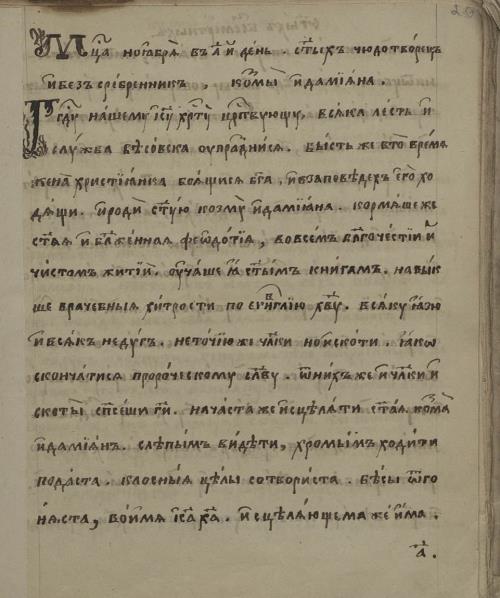 Мц҃а ноѧбрѧ̀ въ а҃ й де́нь . ст҃ыхъ чюдотво́рецъ
и҆ безъ сре́бренникъ , козмы̀ и҆ дамїѧ́на .
Гд҃ꙋ нашемꙋ і҆с҃ꙋ хр҃тꙋ̀ цр҃ствꙋющꙋ , всѧ́ка ле́сть и҆
слꙋ́жба бѣсо́вска оупраздни́сѧ . бы́сть же в то̀ вре́мѧ
жена̀ христїѧ́нка боѧ́щисѧ бг҃а , и҆ в за́повѣдехъ е҆гѡ̀ хо
дѧ́щи . и҆ родѝ ст҃ꙋ́ю козмꙋ̀ и҆ дамїѧ́на . кормѧ́ше же
ст҃аѧ и҆ бл҃же́ннаѧ ѳео҆до́тїѧ , во все́мъ бл҃гоче́стїи и҆
чи́стомъ житїѝ . оуча́ше ѧ҆̀ ст҃ы́мъ кни́гамъ . навык
ше враче́бныѧ хи́трости по е҆ѵⷢ҇лїю хв҃ꙋ . всѧ́кꙋ ꙗ҆́зю
и҆ всѧ́къ недꙋ́гъ . не то́чїю же чл҃ки но и҆ ско́ти . ꙗ҆́ко
сконча́тисѧ проро́ческомꙋ сло́вꙋ . ѿ ни́хъ же и҆ чл҃ки и҆
скоты̀ сп҃се́ши гд҃и . нача́ста же и҆сцѣлѧ́ти ст҃аѧ . козма̀
и҆ дамїѧ́нъ . слѣпы́мъ ви́дѣти , хромы́мъ ходи́ти
пода́ста . клосны́ѧ цѣ́лы сотвори́ста . бѣ́сы ѿго
нѧ́ста , во и҆́мѧ і҆с҃а хр҃та̀ . и҆сцѣлѧ́ющема же и҆́ма .